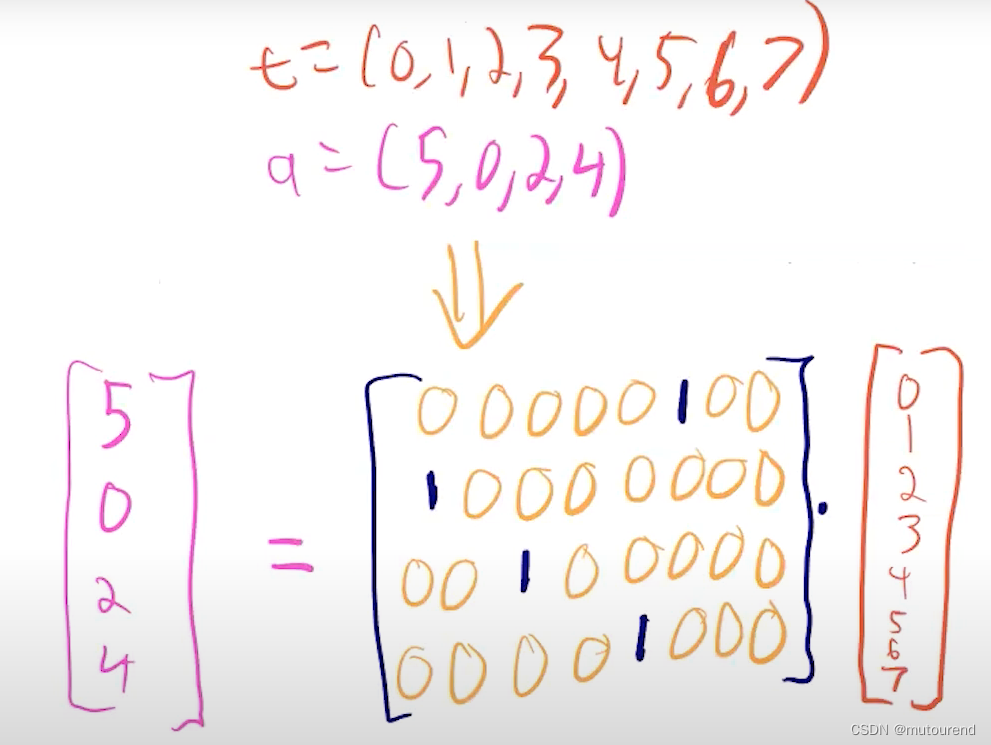 t=(0,1,2,3,4,5,6,7)
a=(5,0,2,4)
⇓
[5 0 2 4] = [0 0 0 0 0 1 0 0
1 0 0 0 0 0 0 0
0 0 1 0 0 0 0 0
0 0 0 0 1 0 0 0] · [0 1 2 3 4 5 6 7]
CSDN @mutourend